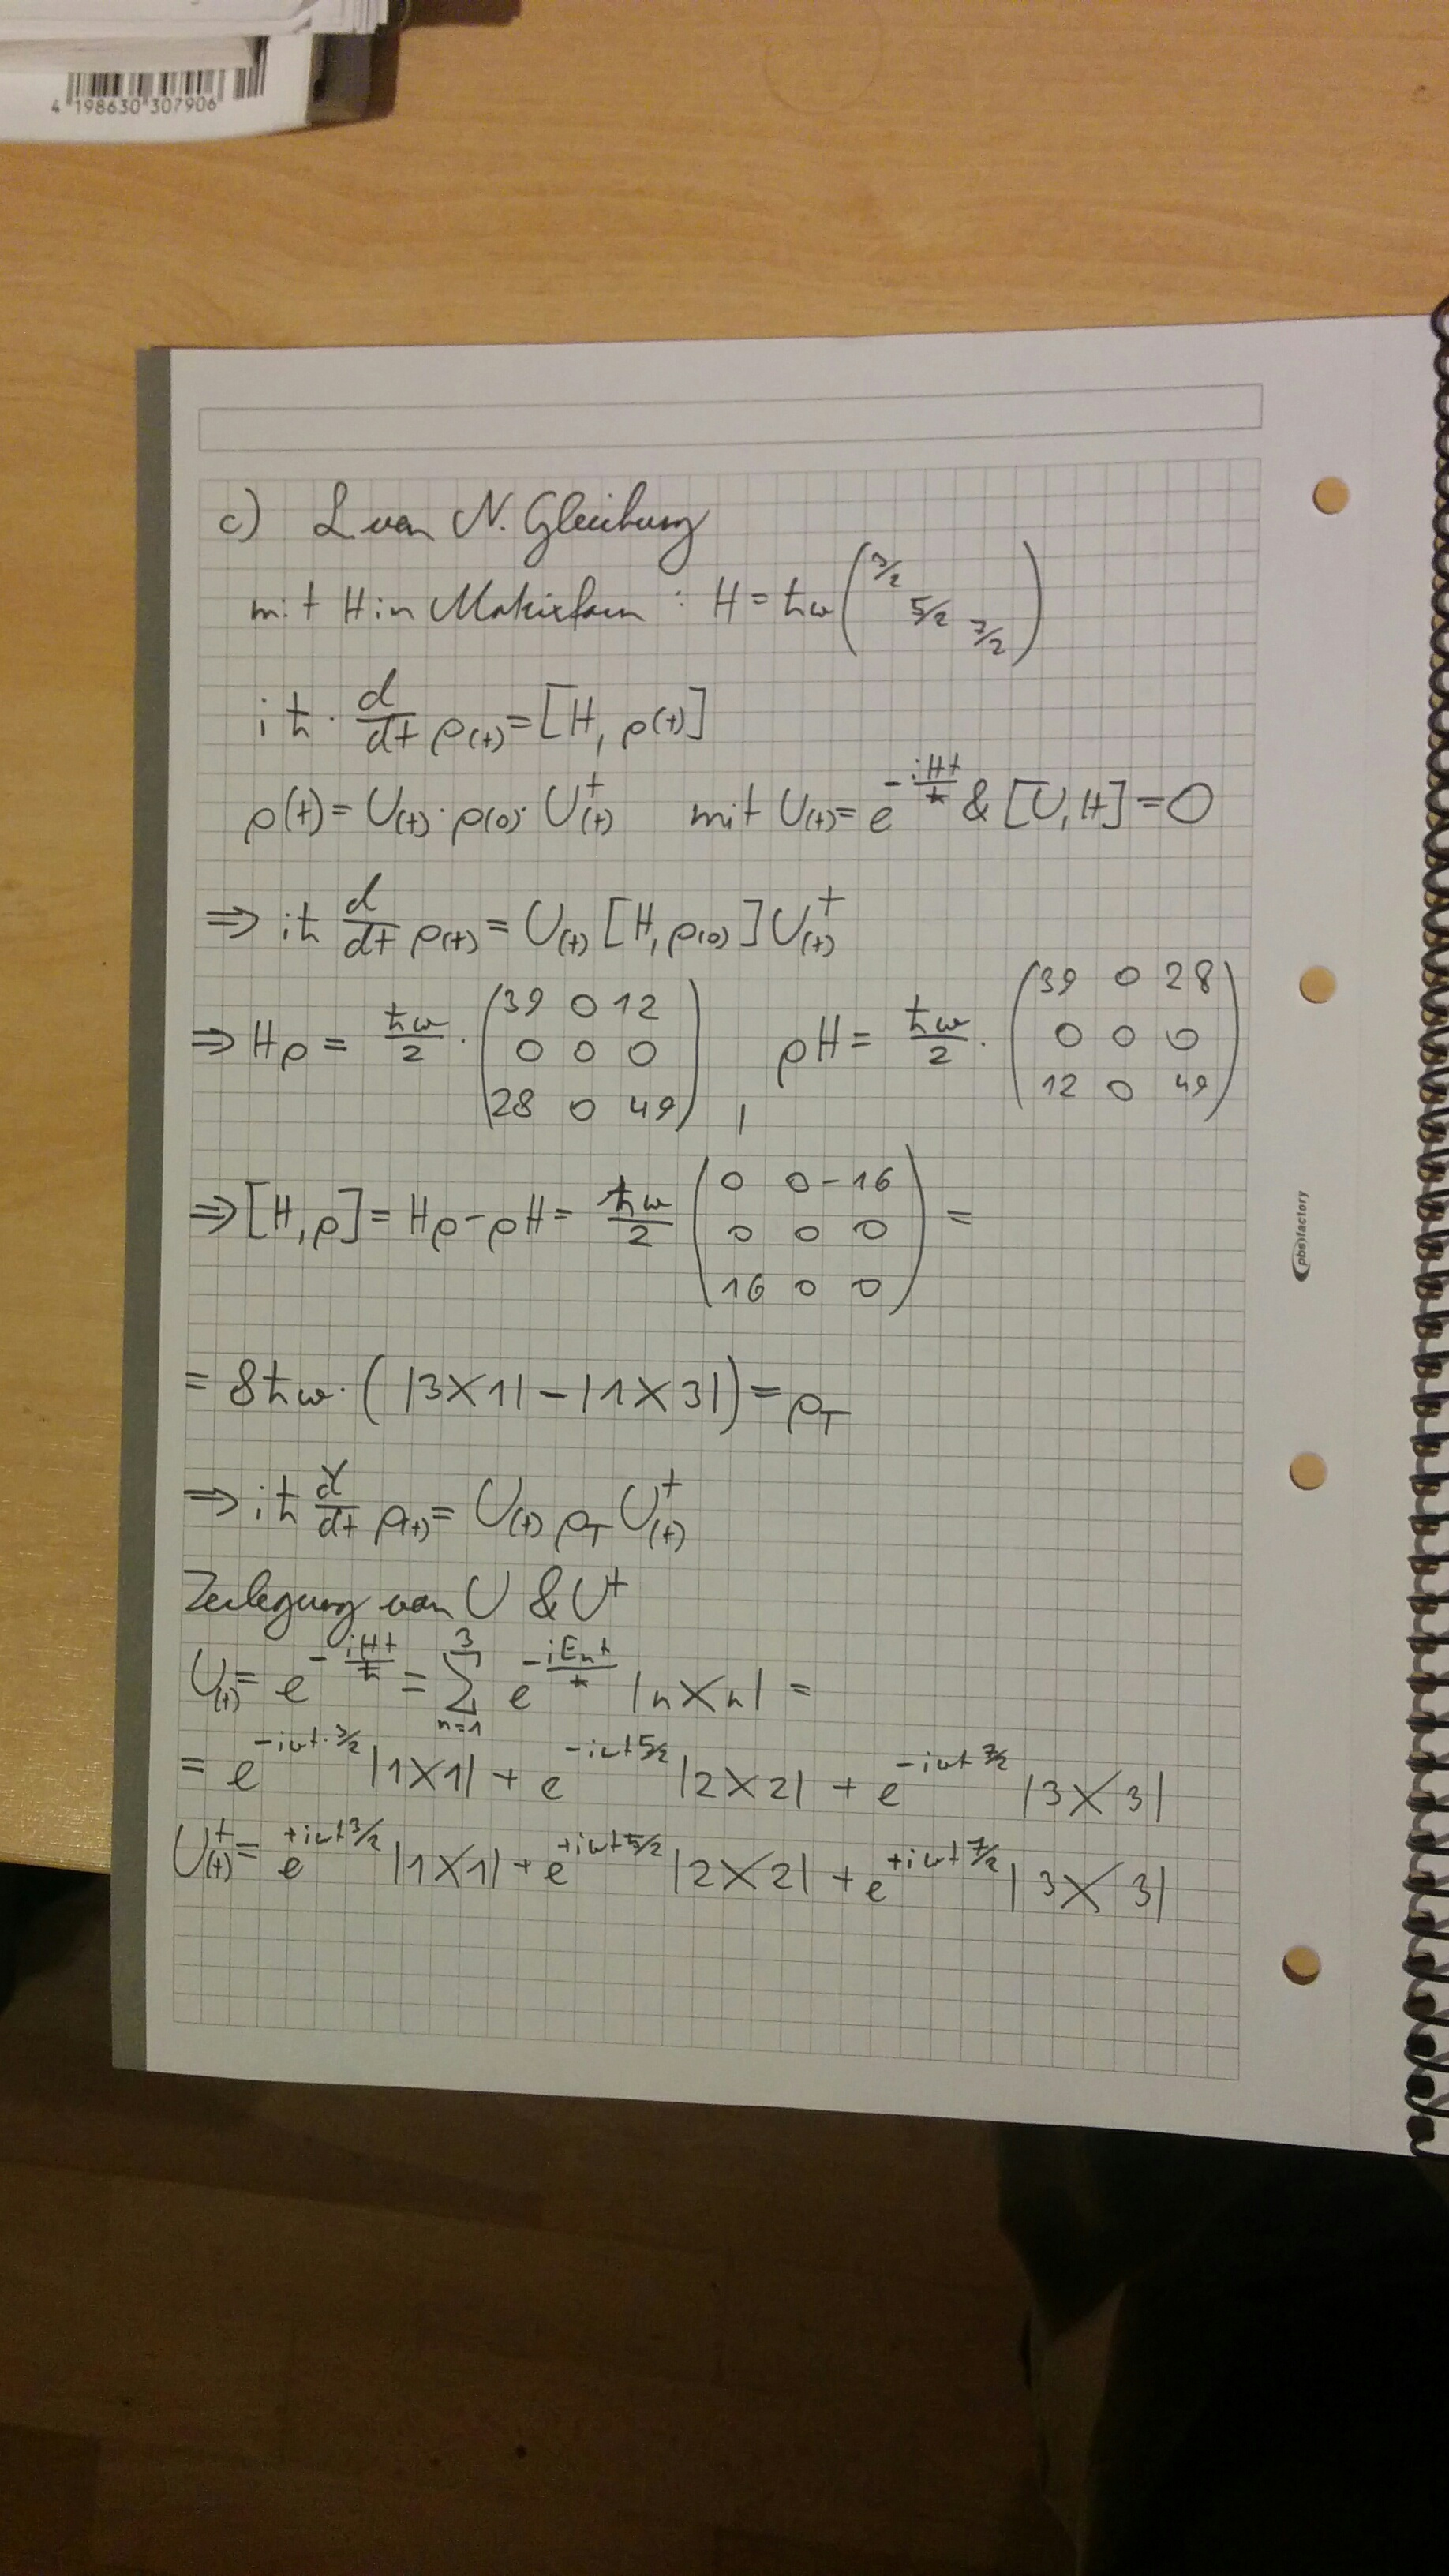 4 198630 307906
c) L von N. Gleichung
mit H in Matrixform : H = ħω ( 3/2 5/2 7/2 )
iħ · d/dt ρ(t) = [H, ρ(t)]
ρ(t) = U(t) · ρ(0) · U†(t) mit U(t) = e^(-iHt/ħ) & [U, H] = 0
⇒ iħ d/dt ρ(t) = U(t) [H, ρ(0)] U†(t)
⇒ Hρ = ħω/2 · (39 0 12 / 0 0 0 / 28 0 49) , ρH = ħω/2 · (39 0 28 / 0 0 0 / 12 0 49)
⇒ [H, ρ] = Hρ - ρH = ħω/2 (0 0 -16 / 0 0 0 / 16 0 0) =
= 8ħω · ( |3X1| - |1X3| ) = ρT
⇒ iħ d/dt ρ(t) = U(t) ρT U†(t)
Zerlegung von U & U†
U(t) = e^(-iHt/ħ) = Σ_(n=1)^3 e^(-iEnt/ħ) |nXn| =
= e^(-iωt·3/2) |1X1| + e^(-iωt 5/2) |2X2| + e^(-iωt 7/2) |3X3|
U†(t) = e^(+iωt 3/2) |1X1| + e^(+iωt 5/2) |2X2| + e^(+iωt 7/2) |3X3|
pbs)factory